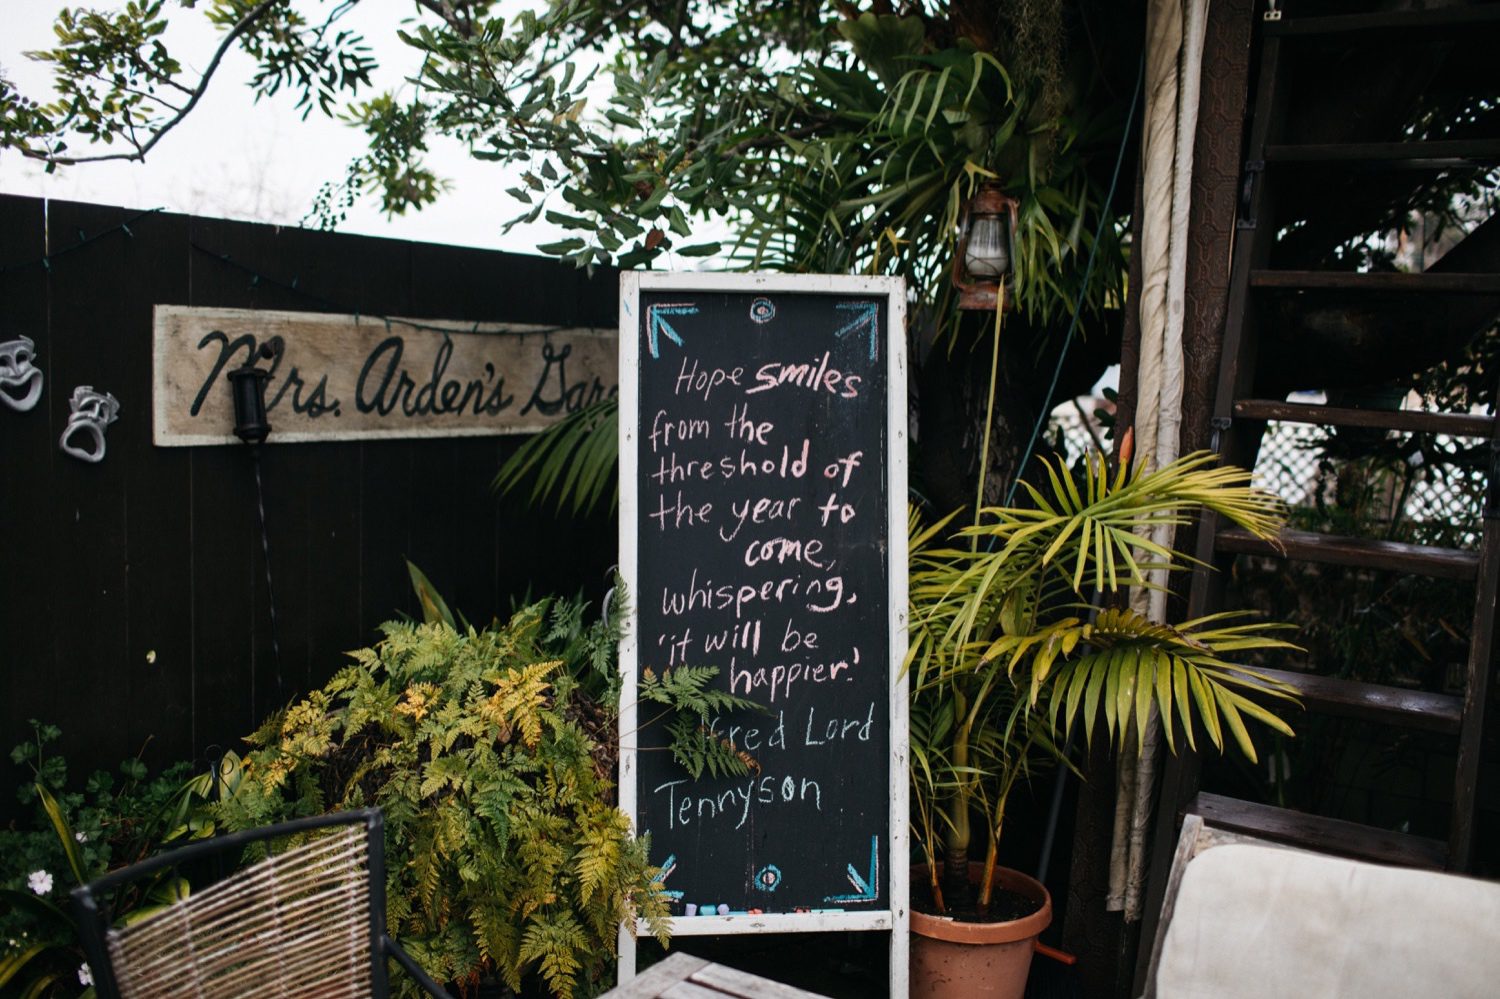 Mrs. Arden's
Hope smiles
from the
threshold of
the year to
come,
whispering,
'it will be
happier.'
Lord
Tennyson